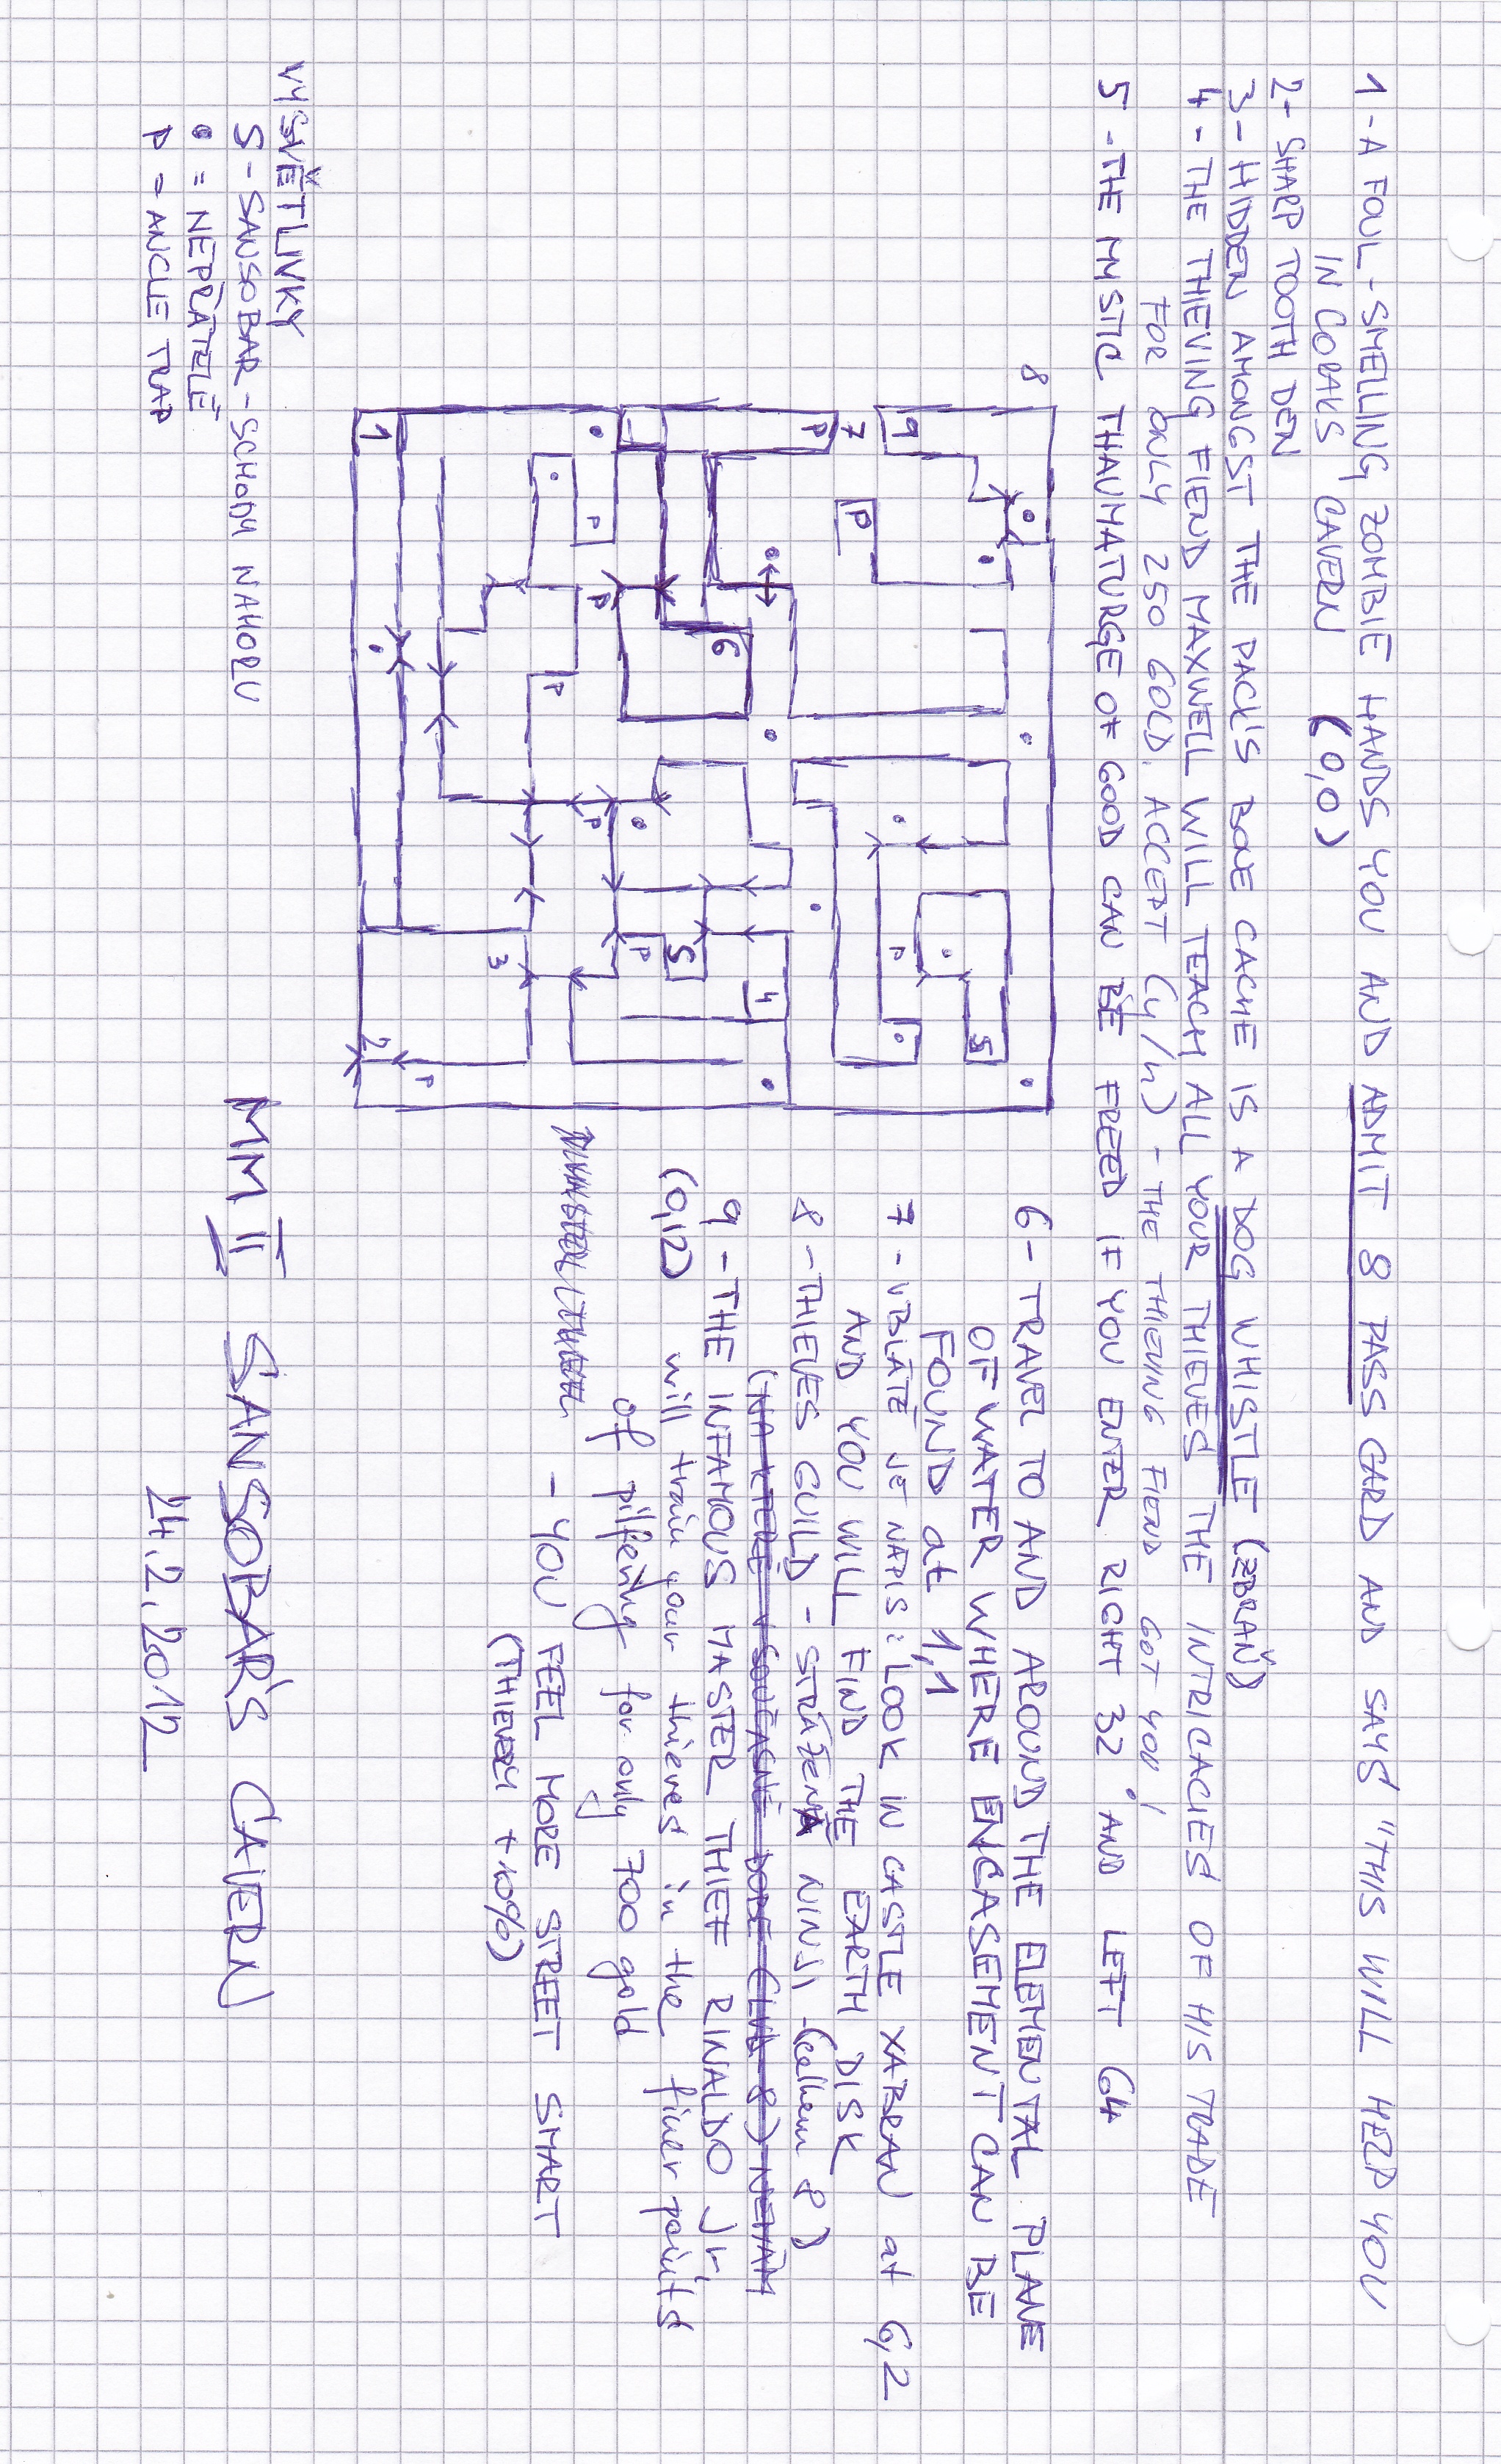 1 - A FOUL-SMELLING ZOMBIE HANDS YOU AND ADMIT 8 PASS CARD AND SAYS "THIS WILL HELP YOU
IN CORAKS CAVERN (0,0)
2 - SHARP TOOTH DEN
3 - HIDDEN AMONGST THE PACK'S BONE CACHE IS A DOG WHISTLE (ZBRAŇ)
4 - THE THIEVING FIEND MAXWELL WILL TEACH ALL YOUR THIEVES THE INTRICACIES OF HIS TRADE
FOR ONLY 250 GOLD. ACCEPT (y/n) - THE THIEVING FIEND GOT YOU!
5 - THE MYSTIC THAUMATURGE OF GOOD CAN BE FREED IF YOU ENTER RIGHT 32 AND LEFT 64
6 - TRAVEL TO AND AROUND THE ELEMENTAL PLANE
OF WATER WHERE ENCASEMENT CAN BE
FOUND at 1,1
7 - UBLATĚ JE NÁPIS: LOOK IN CASTLE XABRAN at 6,2
AND YOU WILL FIND THE EARTH DISK
8 - THIEVES GUILD - STRÁŽENÁ NINJI - (celkem 8)
(NA KTERÉ V SOUČASNÉ DOBĚ (LVL 8) NEMÁM
9 - THE INFAMOUS MASTER THIEF RINALDO Jr,
(0,12) will train your thieves in the finer points
of pilfering for only 700 gold
- YOU FEEL MORE STREET SMART
(THIEVERY +10%)
8
9
7
P
P
1
P
P
6
P
P
5
P
5
P
4
3
2
P
VYSVĚTLIVKY
S - SANSOBAR - SCHODY NAHORU
• = NEPŘÁTELÉ
P = ANCLE TRAP
MM II SANSOBAR'S CAVERN
24.2.2012